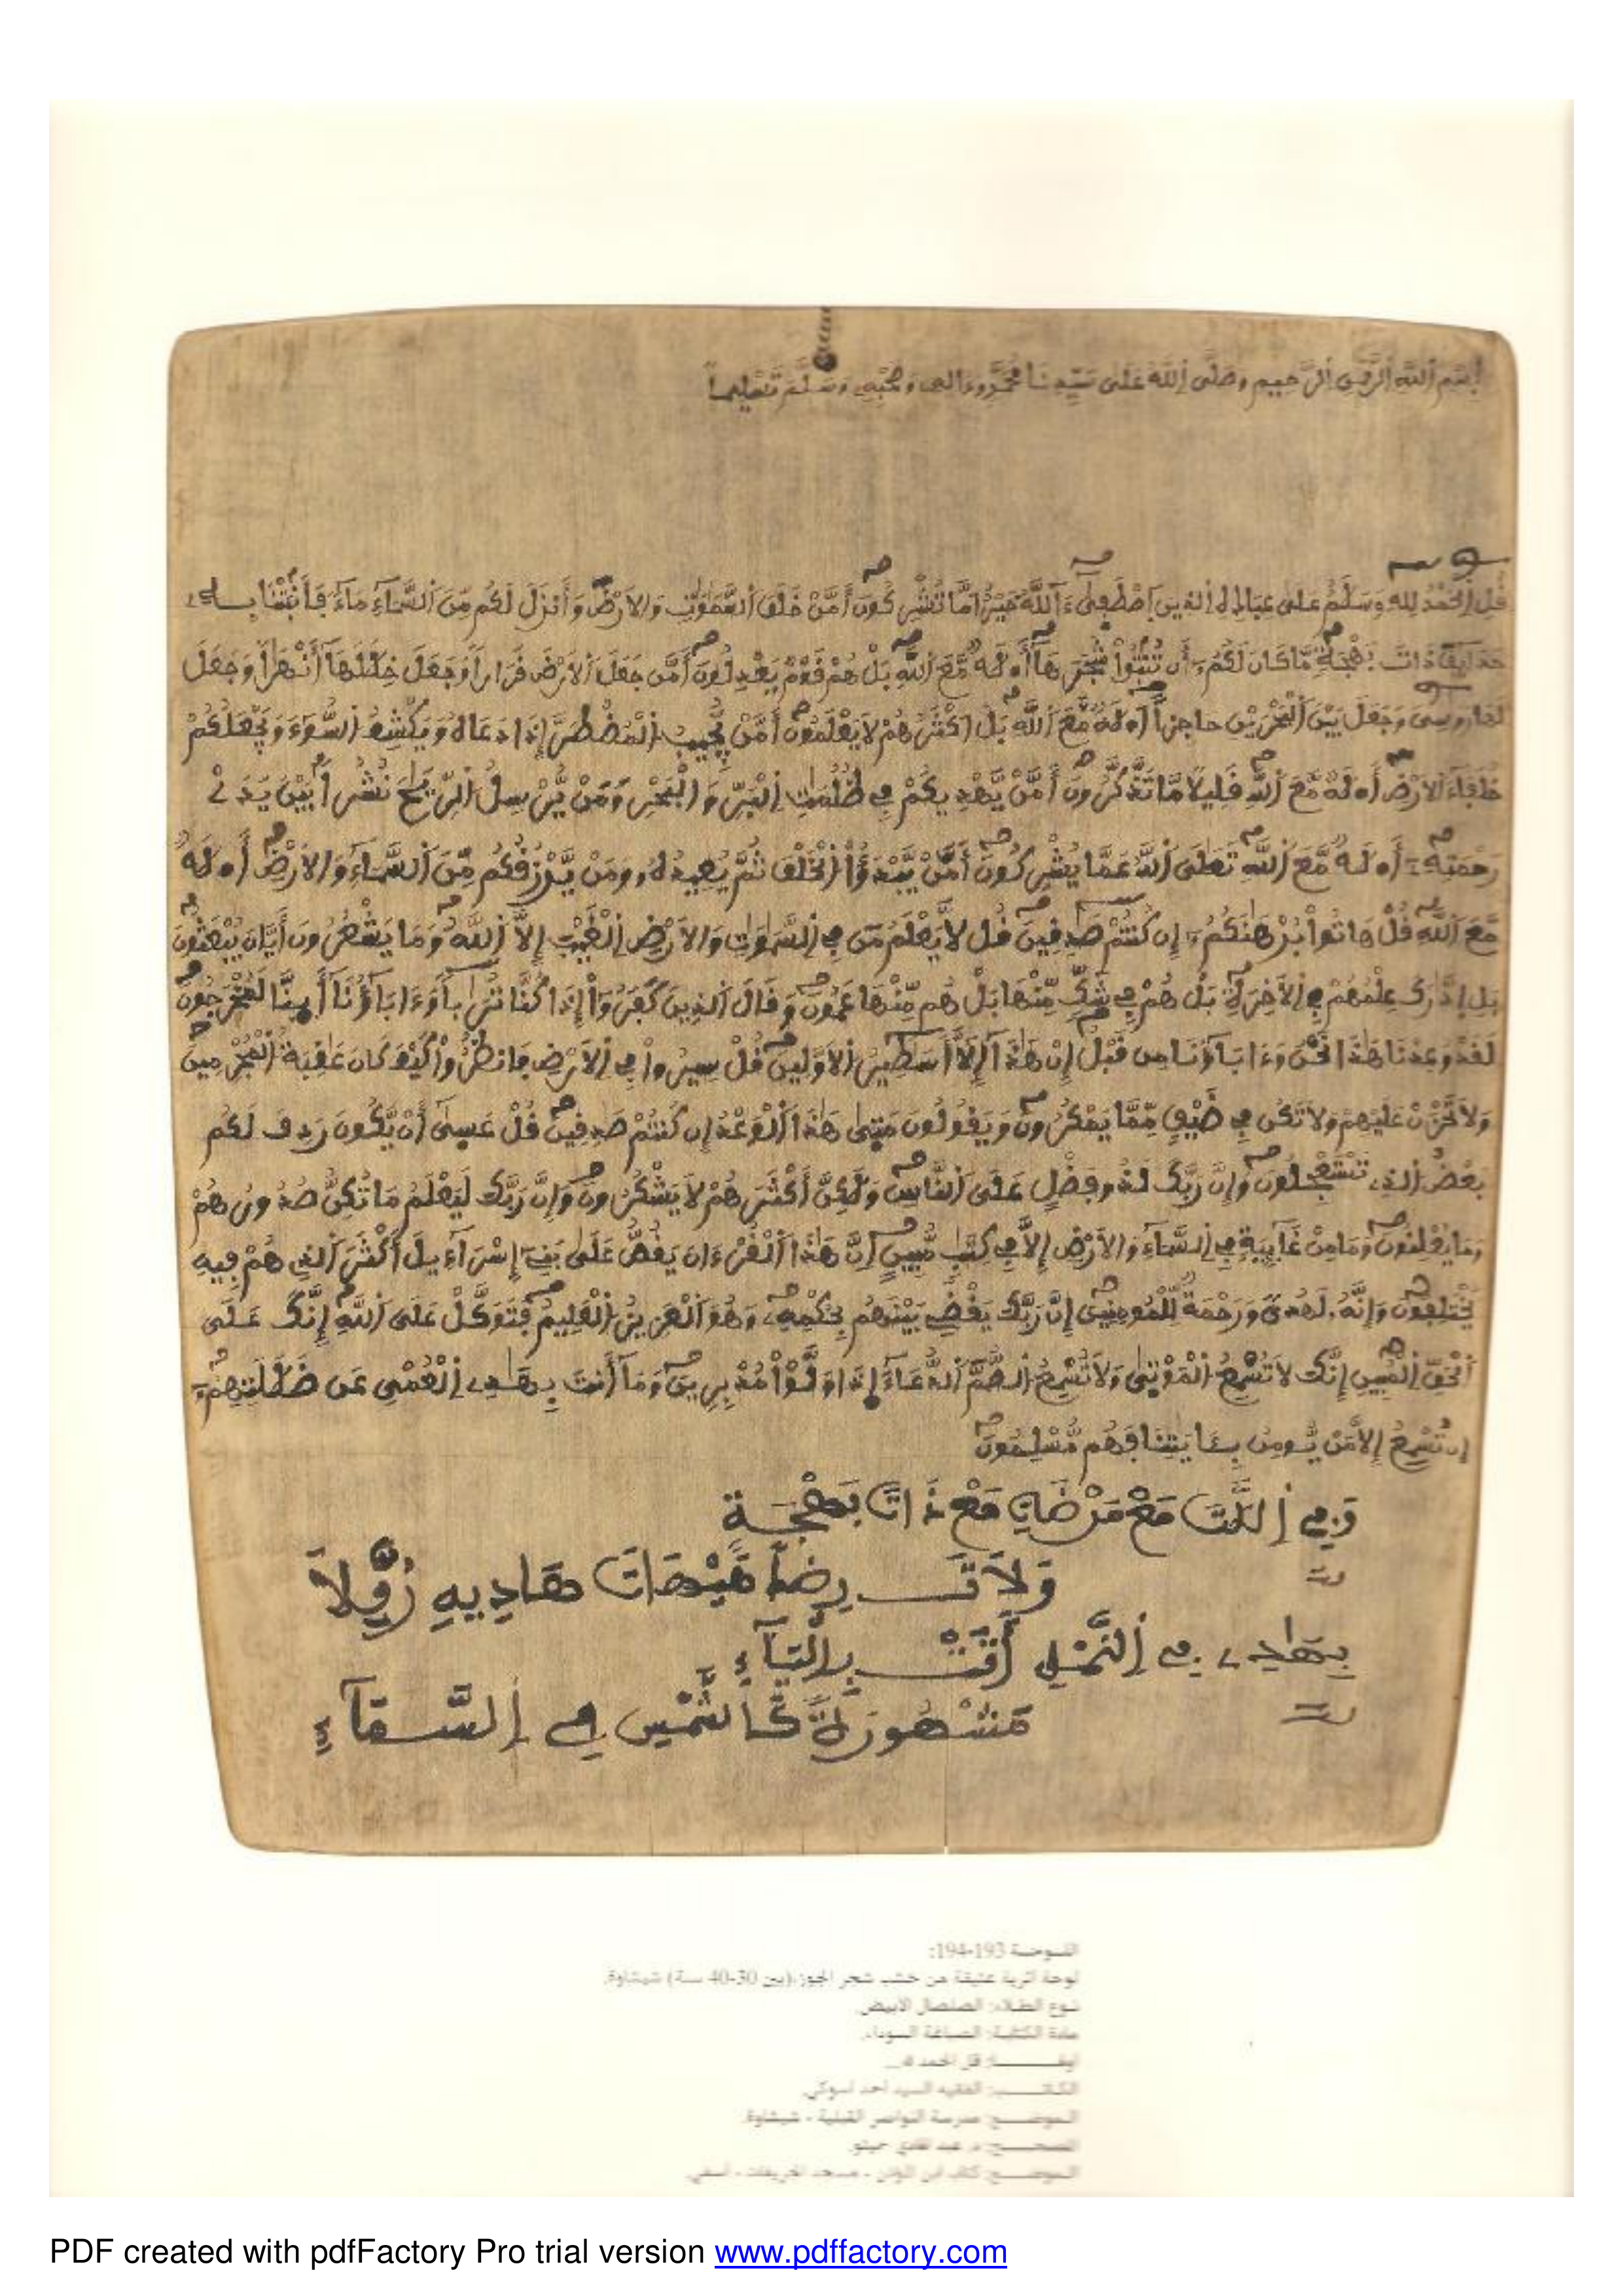 بسم الله الرحمن الرحيم وصلى الله على سيدنا محمد وءاله وصحبه وسلم تسليما
قُلِ اِلْحَمْدُ لِلهِ وَسَلَٰمٌ عَلَىٰ عِبَادِهِ اِلذِينَ اَصْطَفِىٰٓ ءَآللَّهُ خَيْرٌ اَمَّا تُشْرِكُونَ أَمَّنْ خَلَقَ اَلسَّمَٰوَٰتِ وَالَارْضَ وَأَنزَلَ لَكُم مِّنَ اَلسَّمَآءِ مَآءً فَأَنۢبَتْنَا بِهِۦ
حَدَآئِقَ ذَاتَ بَهْجَةٍ مَّا كَانَ لَكُمُۥٓ أَن تُنۢبِتُواْ شَجَرَهَآ أَ۟لَٰهٌ مَّعَ اَللَّهِ بَلْ هُمْ قَوْمٌ يَعْدِلُونَ أَمَّن جَعَلَ اَلَارْضَ قَرَاراً وَجَعَلَ خِلَٰلَهَآ أَنْهَٰراً وَجَعَلَ
لَهَا رَوَٰسِىَ وَجَعَلَ بَيْنَ اَلْبَحْرَيْنِ حَاجِزاً أَ۟لَٰهٌ مَّعَ اَللَّهِ بَلَ اَكْثَرُهُمْ لَا يَعْلَمُونَ أَمَّنْ يُّجِيبُ اُلْمُضْطَرَّ إِذَا دَعَاهُ وَيَكْشِفُ اُلسُّوٓءَ وَيَجْعَلُكُمْ
خُلَفَآءَ اَلَارْضِ أَ۟لَٰهٌ مَّعَ اَللَّهِ قَلِيلًا مَّا تَذَّكَّرُونَ أَمَّنْ يَّهْدِيكُمْ فِي ظُلُمَٰتِ اِلْبَرِّ وَالْبَحْرِ وَمَنْ يُّرْسِلُ اُلرِّيَٰحَ نُشُراً بَيْنَ يَدَىْ
رَحْمَتِهِۦٓ أَ۟لَٰهٌ مَّعَ اَللَّهِ تَعَٰلَى اَللَّهُ عَمَّا يُشْرِكُونَ أَمَّنْ يَّبْدَؤُاْ اُلْخَلْقَ ثُمَّ يُعِيدُهُۥ وَمَنْ يَّرْزُقُكُم مِّنَ اَلسَّمَآءِ وَالَارْضِ أَ۟لَٰهٌ
مَّعَ اَللَّهِ قُلْ هَاتُواْ بُرْهَٰنَكُمُۥٓ إِن كُنتُمْ صَٰدِقِينَ قُل لَّا يَعْلَمُ مَن فِي اِلسَّمَٰوَٰتِ وَالَارْضِ اِلْغَيْبَ إِلَّا اَللَّهُ وَمَا يَشْعُرُونَ أَيَّانَ يُبْعَثُونَ
بَلِ اِدَّٰرَكَ عِلْمُهُمْ فِي اِلَاخِرَةِ بَلْ هُمْ فِي شَكٍّ مِّنْهَا بَلْ هُم مِّنْهَا عَمُونَ وَقَالَ اَلذِينَ كَفَرُوٓاْ إِذَا كُنَّا تُرَٰباً وَءَابَآؤُنَآ أَ۟ئِنَّا لَمُخْرَجُونَ
لَقَدْ وُعِدْنَا هَٰذَا نَحْنُ وَءَابَآؤُنَا مِن قَبْلُ إِنْ هَٰذَآ إِلَّآ أَسَٰطِيرُ اُلَاوَّلِينَ قُلْ سِيرُواْ فِي اِلَارْضِ فَانظُرُواْ كَيْفَ كَانَ عَٰقِبَةُ اُلْمُجْرِمِينَ
وَلَا تَحْزَنْ عَلَيْهِمْ وَلَا تَكُن فِي ضَيْقٍ مِّمَّا يَمْكُرُونَ وَيَقُولُونَ مَتَىٰ هَٰذَا اَلْوَعْدُ إِن كُنتُمْ صَٰدِقِينَ قُلْ عَسِىٰٓ أَنْ يَّكُونَ رَدِفَ لَكُم
بَعْضُ اُلذِي تَسْتَعْجِلُونَ وَإِنَّ رَبَّكَ لَذُو فَضْلٍ عَلَى اَلنَّاسِ وَلَٰكِنَّ أَكْثَرَهُمْ لَا يَشْكُرُونَ وَإِنَّ رَبَّكَ لَيَعْلَمُ مَا تُكِنُّ صُدُورُهُمْ
وَمَا يُعْلِنُونَ وَمَا مِنْ غَآئِبَةٍ فِي اِلسَّمَآءِ وَالَارْضِ إِلَّا فِي كِتَٰبٍ مُّبِينٍ إِنَّ هَٰذَا اَلْقُرْءَانَ يَقُصُّ عَلَىٰ بَنِىٓ إِسْرَآءِيلَ أَكْثَرَ اَلذِي هُمْ فِيهِ
يَخْتَلِفُونَ وَإِنَّهُۥ لَهُدىً وَرَحْمَةٌ لِّلْمُومِنِينَ إِنَّ رَبَّكَ يَقْضِي بَيْنَهُم بِحُكْمِهِۦ وَهُوَ اَلْعَزِيزُ اُلْعَلِيمُ فَتَوَكَّلْ عَلَى اَللَّهِ إِنَّكَ عَلَى
اَلْحَقِّ اِلْمُبِينِ إِنَّكَ لَا تُسْمِعُ اُلْمَوْتِىٰ وَلَا تُسْمِعُ اُلصُّمَّ اَلدُّعَآءَ إِذَا وَلَّوْاْ مُدْبِرِينَ وَمَآ أَنتَ بِهَٰدِي اِلْعُمْىِ عَن ضَلَٰلَتِهِمُۥٓ
إِن تُسْمِعُ إِلَّا مَنْ يُّومِنُ بِـَٔايَٰتِنَا فَهُم مُّسْلِمُونَ
وَفِي اِللَّٰتَ مَعْ مَرْضَاتِ مَعْ ذَاتَ بَهْجَةٍ
وَلَاتَ رِضاً هَيْهَاتَ هَادِيهِ رُفِّلَا
بِهَٰدِي فِي اِلنَّمْلِ أَتَتْ بِالْيَآءِ
مَشْهُورَةٌ كَالشَّمْسِ فِي اِلسَّمَآءِ
اللوحة 193-194:
لوحة أثرية عتيقة من خشب شجر الجوز (بين 30-40 سنة) شيشاوة.
نوع الطلاء: الصلصال الأبيض.
مادة الكتابة: الصباغة السوداء.
قل الحمد لله
الكاتب: الفقيه السيد أحمد
الموضع: مدرسة النواصر القبلية - شيشاوة.
PDF created with pdfFactory Pro trial version www.pdffactory.com